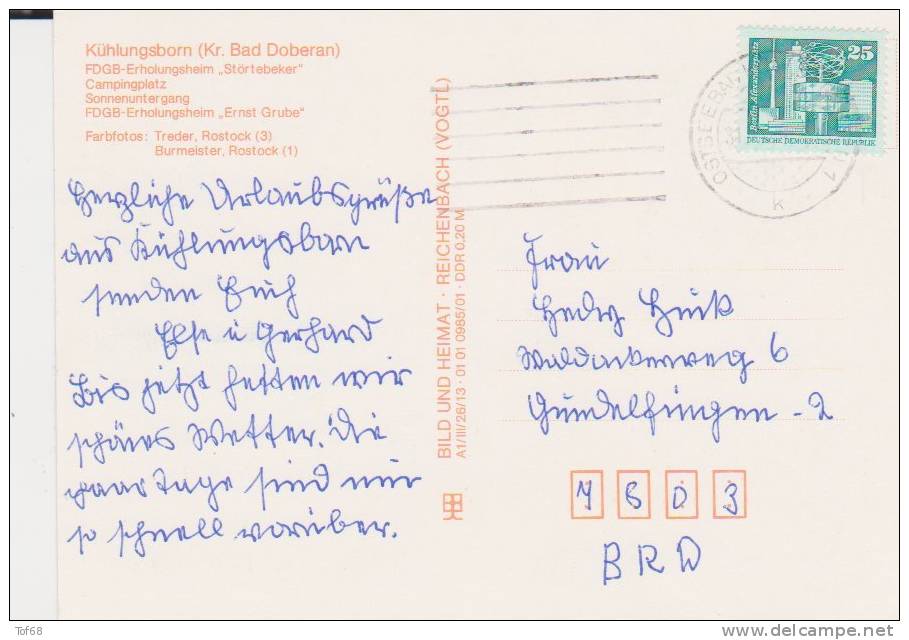 Kühlungsborn (Kr. Bad Doberan)
FDGB-Erholungsheim „Störtebeker"
Campingplatz
Sonnenuntergang
FDGB-Erholungsheim „Ernst Grube"
Farbfotos: Treder, Rostock (3)
Burmeister, Rostock (1)
Herzliche Urlaubsgrüße
aus Kühlungsborn
senden Euch
Else u Gerhard
Bis jetzt hatten wir
schönes Wetter. Die
paar Tage sind nur
so schnell vorüber.
BILD UND HEIMAT · REICHENBACH (VOGTL)
A1/III/26/13 · 01 01 0985/01 · DDR 0,20 M
25
Berlin, Alexanderplatz
DEUTSCHE DEMOKRATISCHE REPUBLIK
OSTSEEBAD
1
K
Frau
Hedwg
Waldackerweg 6
Gundelfingen - 2
7803
BRD
Tof68
www.delcampe.net